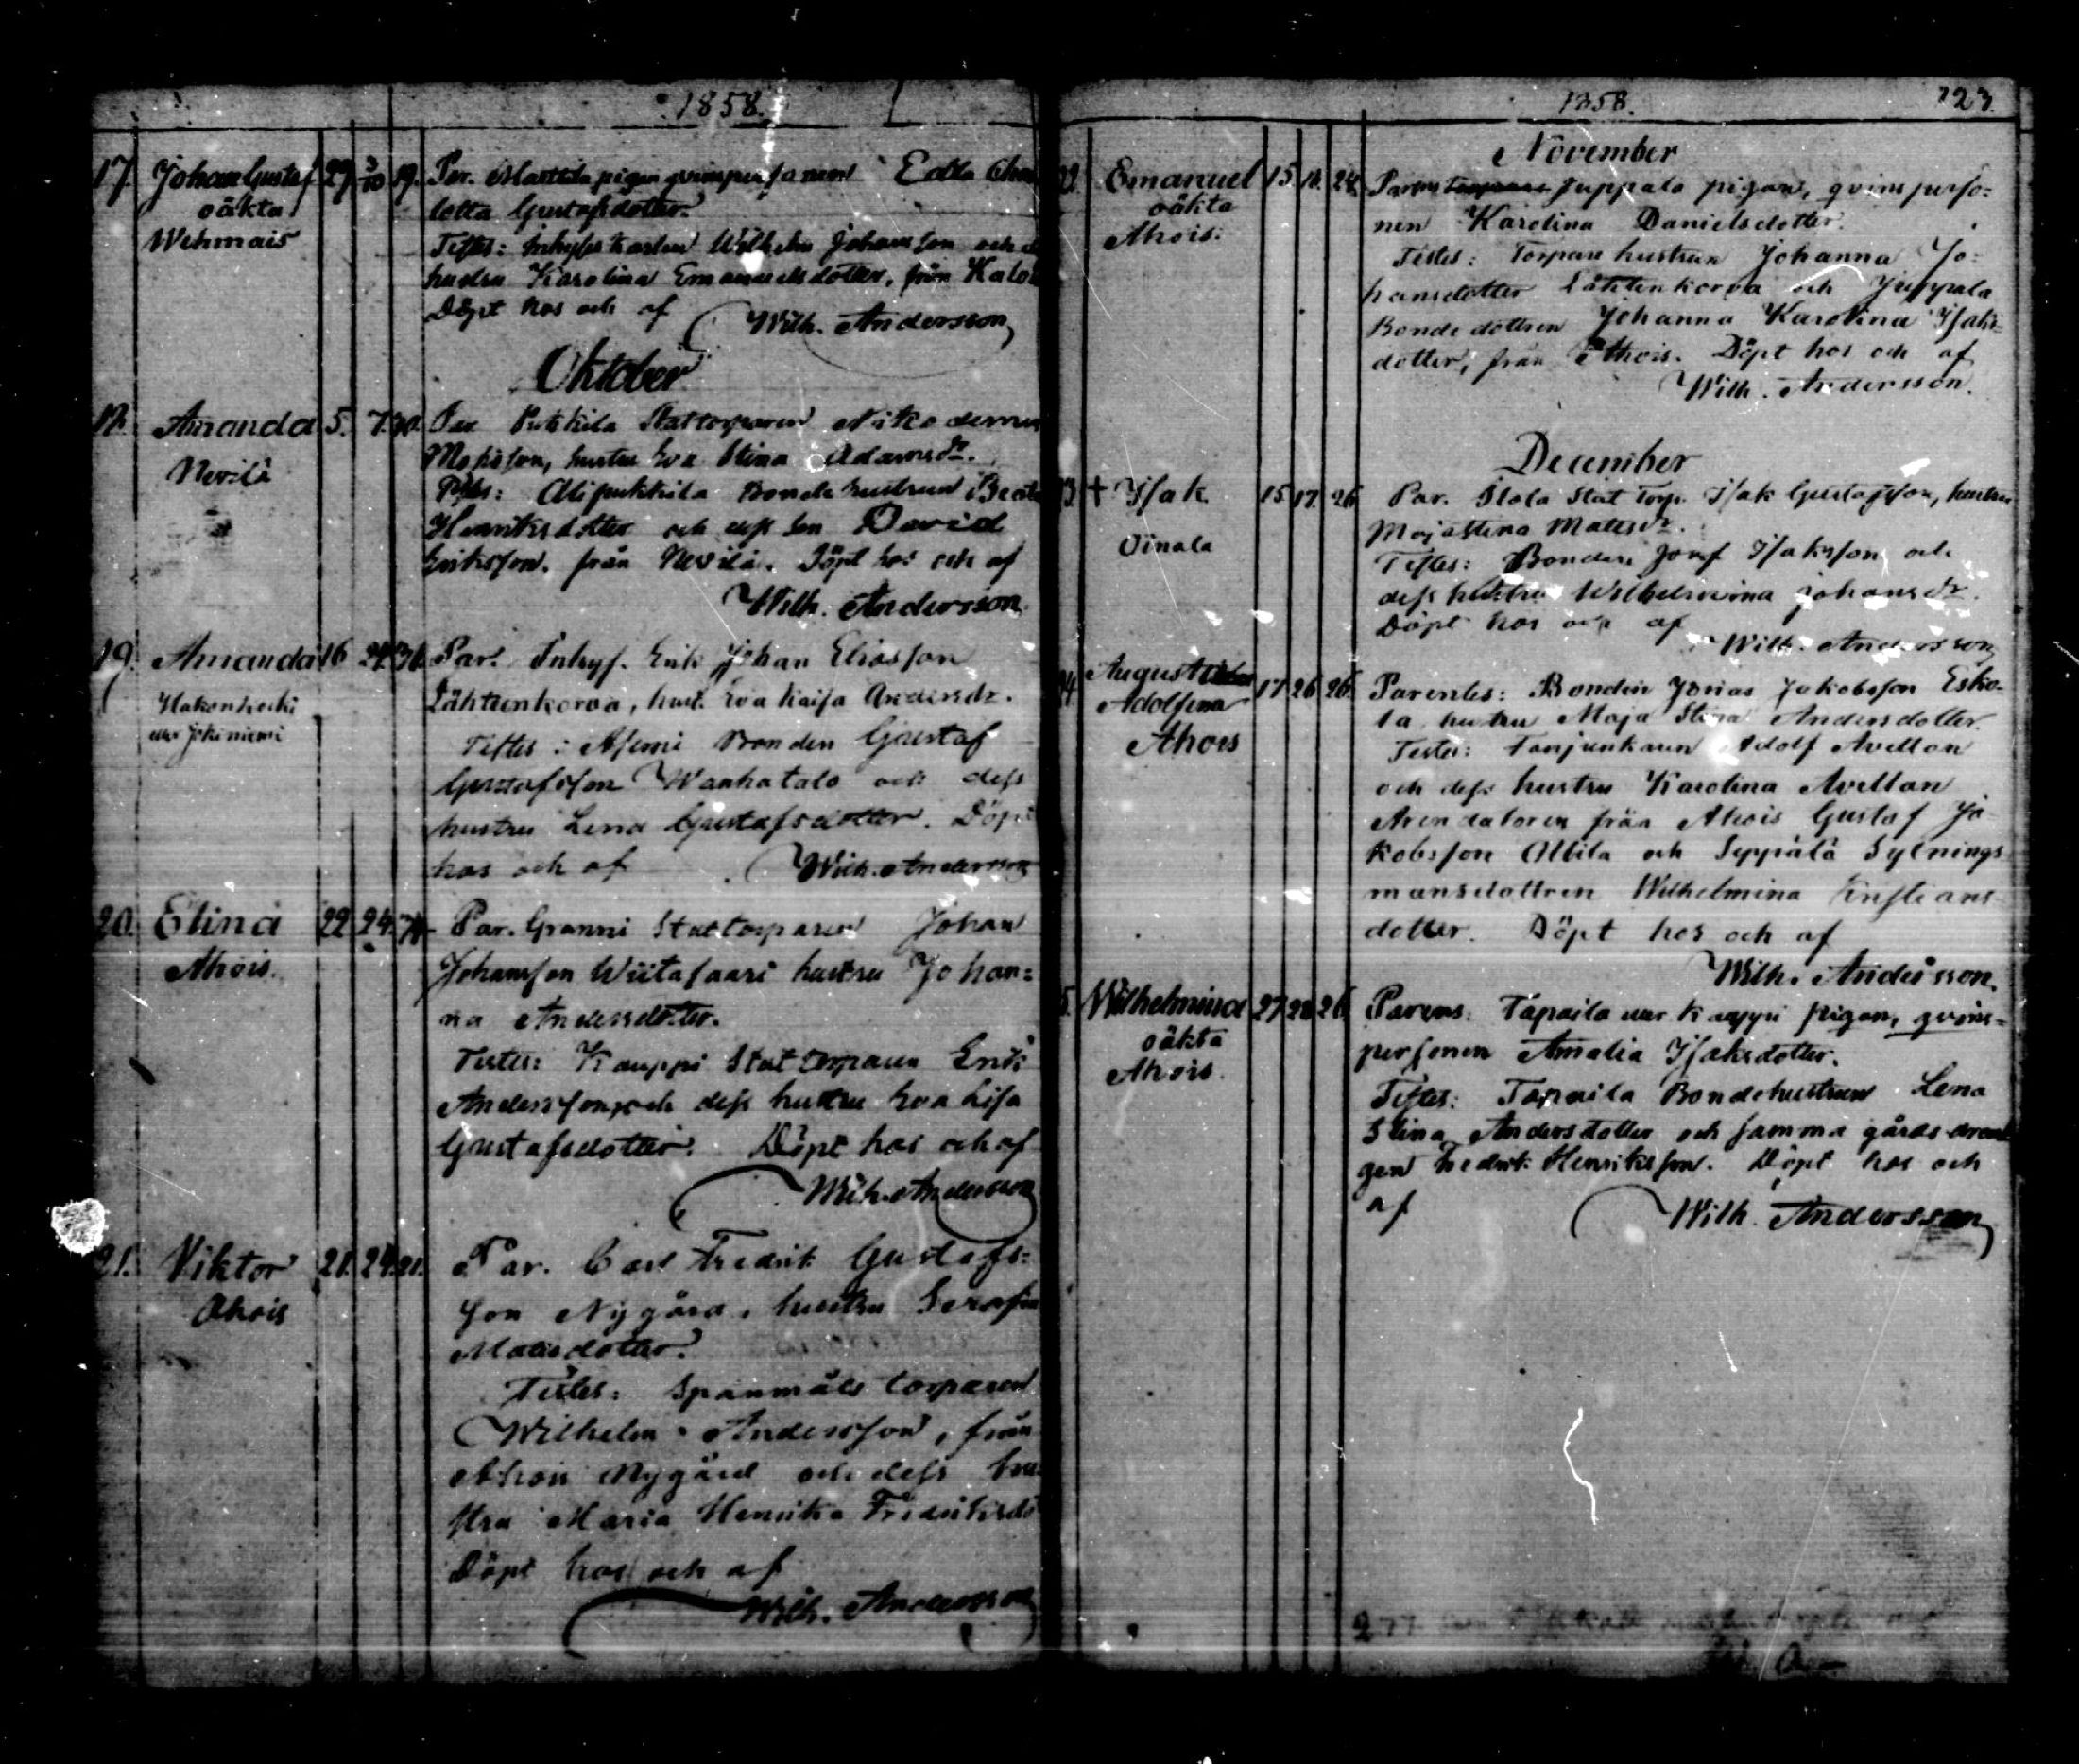 1858.
17. Johan Gustaf 29 3/10 19. Par. Mattila pigan qvinspersonen Edla
oäkta lotta Gustafsdotter.
Wehmais Testes: Inhyses karlen Wilhelm Johansson och
hustru Karolina Emanuelsdotter, från
Döpt hos och af Wilh. Andersson
Oktober
18. Amanda 5. 7. Par Pukkila Stattorparen Nikodemus
hustru Eva Stina Adamsdr.
Nevilä Testes: Alipukkila Bonde hustrun Beata
Henriksdotter och dess son David
Eriksson, från Nevilä. Döpt hos och af
Wilh. Andersson
19. Amanda 16 24 Par. Inhys. Erik Johan Eliasson
Hakonkoski Lähtenkorva, hust. Eva Kaisa Andersdr.
eller Jokiniemi
Testes: Asemi Bonden Gustaf
Gustafsson Wanhatalo och dess
hustru Lena Gustafsdotter. Döpt
hos och af Wilh. Andersson
20. Elina 22 24 Par. Granni Stattorparen Johan
Ahois. Johansson Wiitasaari hustru Johan=
na Andersdotter.
Testes: Kauppi Stattorparen Erik
Andersson, och dess hustru Eva Lisa
Gustafsdotter. Döpt hos och af
Wilh. Andersson
21. Viktor 21. 24. 21. Par. Carl Fredrik Gustafs=
Ahois son Nygård, hustru Serafin
Matsdotter.
Testes: Spanmåls torparen
Wilhelm Andersson, från
Ahois Nygård och dess hu
stru Maria Henrika Fredriksdo
Döpt hos och af
Wilh. Andersson
1858. 123.
November
22. Emanuel 15 18. 24. Parens Juppala pigan, qvinsperso=
oäkta nen Karolina Danielsdotter.
Ahois. Testes: Torpare hustrun Johanna Jo=
hansdotter Lähtenkorva och Juppala
Bonde dottren Johanna Karolina Isaks=
dotter, från Ahois. Döpt hos och af
Wilh. Andersson.
December
3 + Isak 15 17. 26 Par. Stola Stat Torp. Isak Gustafsson, hustru
Majastina Matsdr.
Oinala Testes: Bonden Josef Isaksson och
dess hustru Wilhelmina Johansdr.
Döpt hos och af Wilh. Andersson
4 August
Adolfina 17 26 26. Parentes: Bonden Jonas Jakobsson Esko-
la hustru Maja Stina Andersdotter.
Ahois Testes: Fanjunkaren Adolf Avellan
och dess hustru Karolina Avellan
Arendatoren från Ahois Gustaf Ja
kobsson Ollila och Seppälä Sytnings
mansdottren Wilhelmina Kristians
dotter. Döpt hos och af
Wilh. Andersson.
5. Wilhelmina 27 28 26 Parens: Tapaila Kauppi pigan, qvins=
oäkta personen Amalia Isaksdotter.
Ahois. Testes: Tapaila Bondehustrun Lena
Stina Andersdotter och samma gårds drän
gen Fredrik Henriksson. Döpt hos och
af Wilh. Andersson